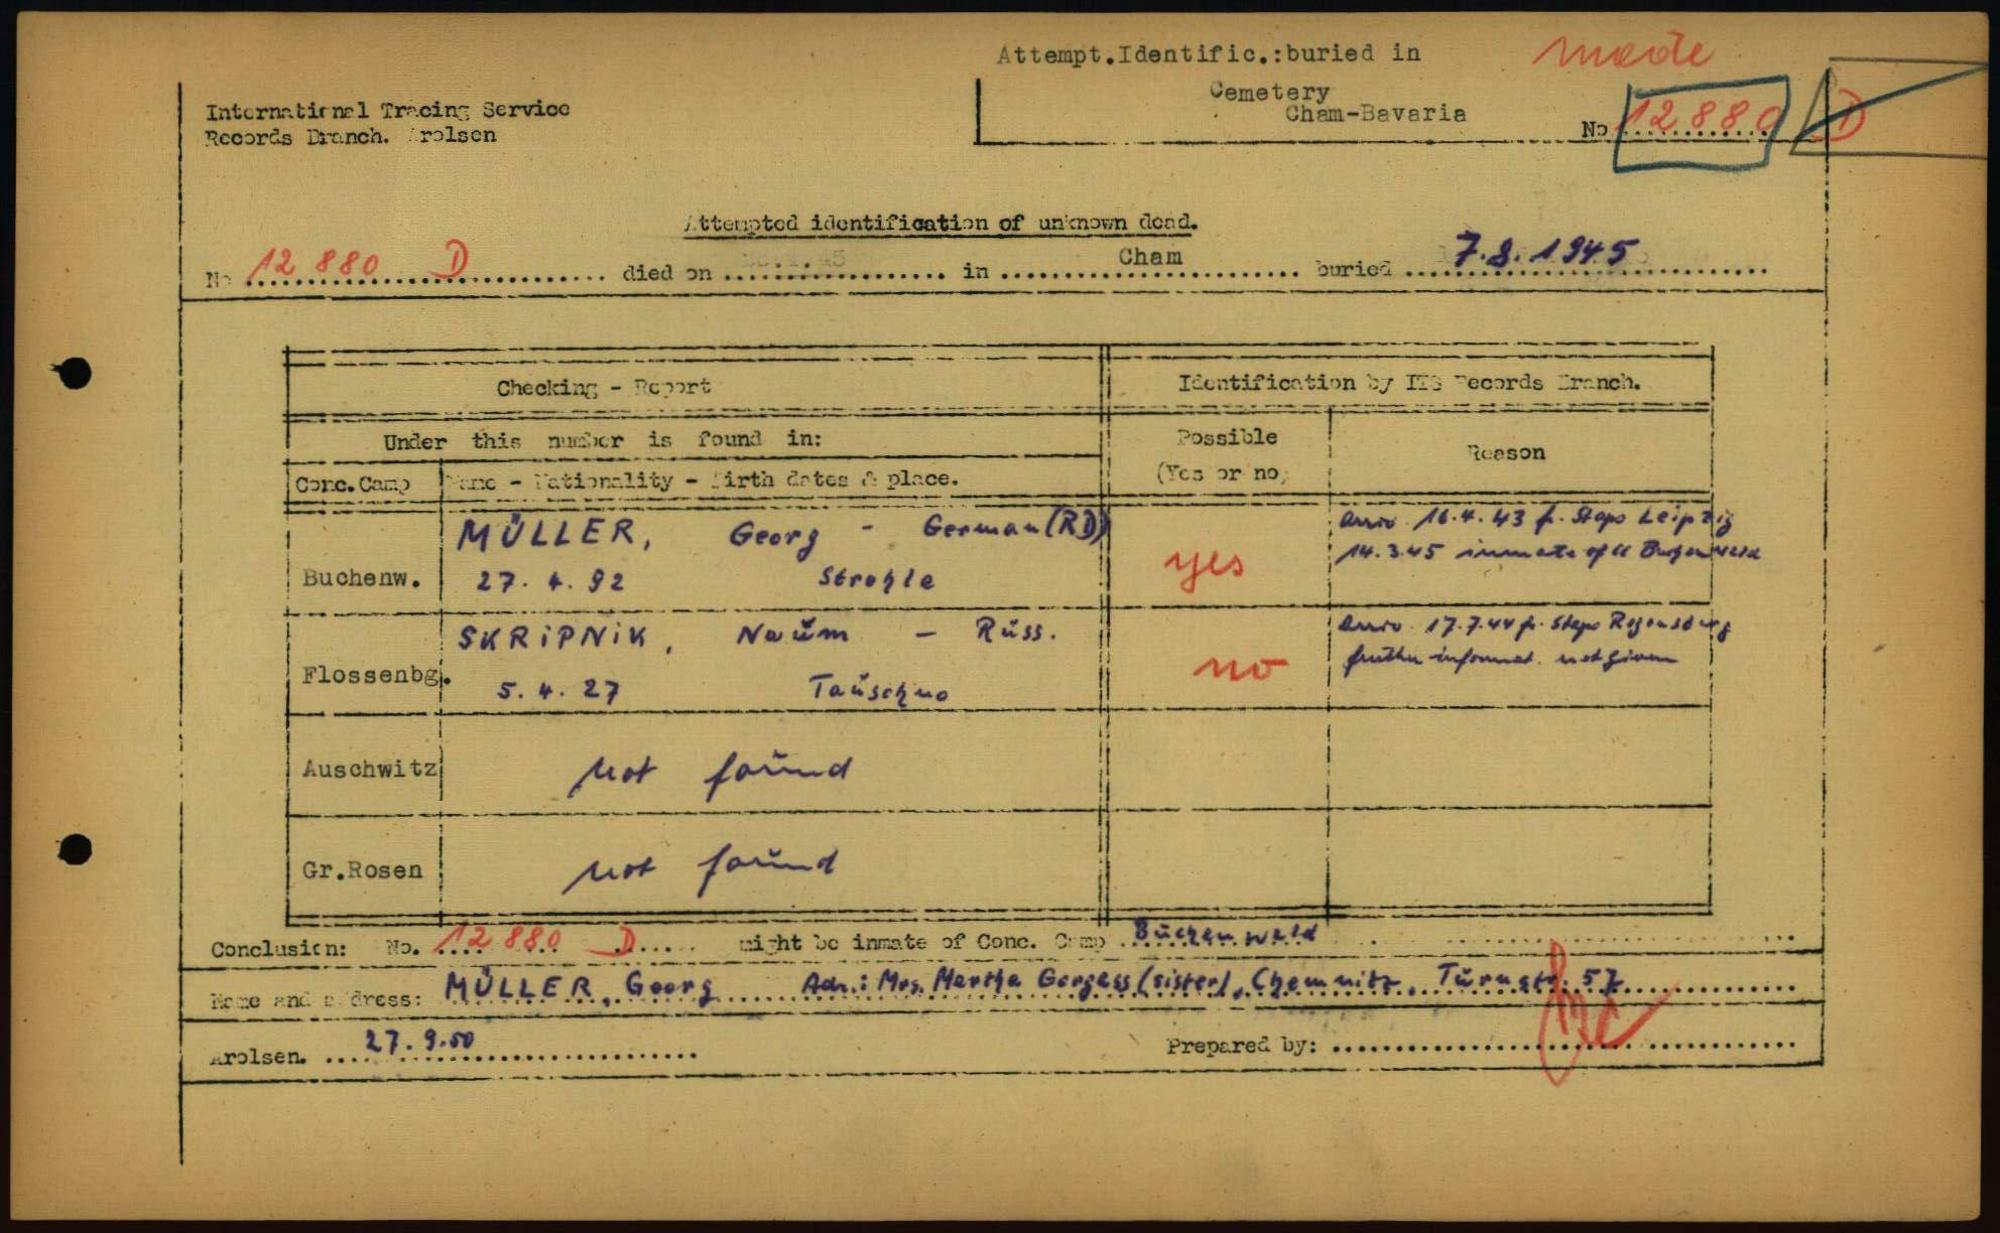 Attempt.Identific.:buried in
made
Cemetery
Cham-Bavaria
International Tracing Service
Records Branch. Arolsen
No 12880 D
Attempted identification of unknown dead.
No 12 880 D died on in Cham buried 7.8.1945
Checking - Report
Identification by ITS Records Branch.
Under this number is found in:
Possible
(Yes or no)
Reason
Conc.Camp
Name - Nationality - Birth dates & place.
Buchenw.
MÜLLER, Georg - German (RD)
27. 4. 92 Strehle
yes
arriv. 16.4.43 fr. Stapo Leipzig
14.3.45 inmate of cc Buchenwald
Flossenbg.
SKRIPNIK, Naum - Russ.
5. 4. 27 Tauschno
no
arriv. 17.7.44 fr. Stapo Regensburg
further informat. not given
Auschwitz
not found
Gr.Rosen
not found
Conclusion: No. 12 880 D might be inmate of Conc. Camp Buchenwald
Name and address: MÜLLER, Georg Adr.: Mrs. Martha Gorgass (sister), Chemnitz, Turnstr. 57
Arolsen. 27.9.50
Prepared by: